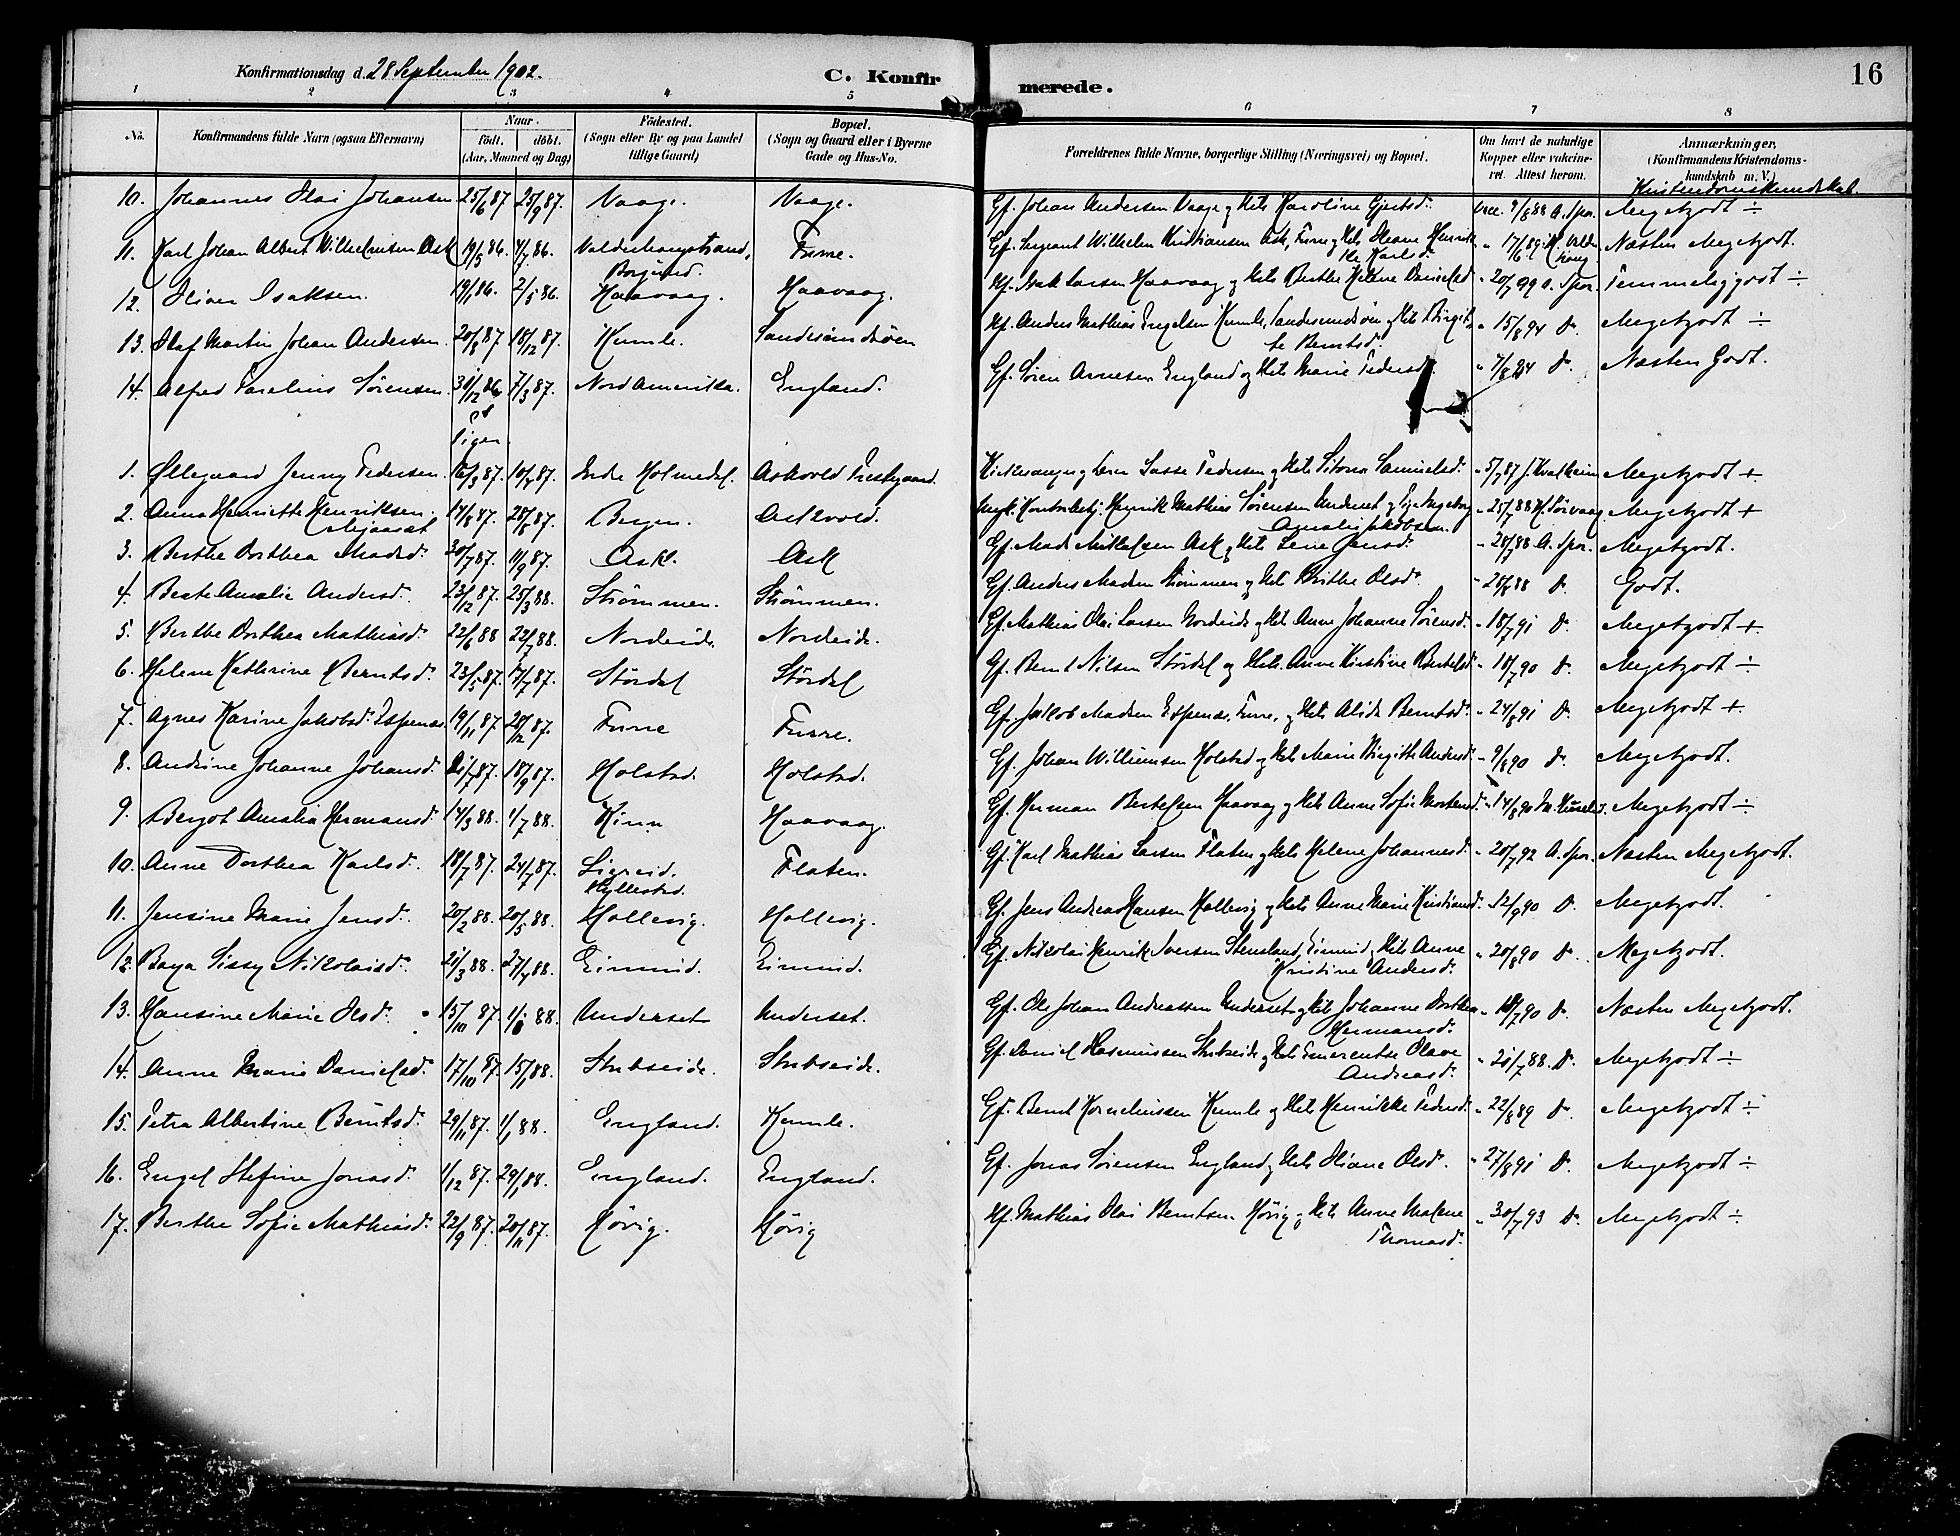 Konfirmationsdag d. 28 September 1902.
C. Konfirmerede.
16
1 2 3 4 5 6 7 8
No. Konfirmandens fulde Navn (ogsaa Efternavn) Naar. født. døbt. (Aar, Maaned og Dag) Fødested. (Sogn eller By og paa Landet tillige Gaard) Bopæl. (Sogn og Gaard eller i Byerne Gade og Hus-No. Forældrenes fulde Navne, borgerlige Stilling (Næringsvei) og Bopæl. Om havt de naturlige Kopper eller vakcineret. Attest herom. Anmærkninger, (Konfirmandens Kristendomskundskab m. V.)
Kristendomskundskab.
10. Johannes Olai Johansen 25/6 87 25/9 87. Vaage. Vaage. Gf. Johan Andersen Vaage og Kste Karoline Gjertsd. Vacc. 9/8 88 A. Spor. Megetgodt ÷
11. Karl Johan Albert Vilhelmsen Ask 19/5 86. 4/7 86. Valderhaugstrand, Borgund. Furre. Gf. Sergeant Wilhelm Kristiansen Ask, Furre og Kste Oleane Henrikke Karlsd. " 17/6 89 Næsten Megetgodt.
12. Oliver Isaksen. 19/1 86. 2/5 86. Haavaag. Haavaag. Kf. Isak Larsen Haavaag og Kste Berthe Helene Danielsd " 20/7 99 A. Spor. Temmelig godt ÷
13. Olaf Martin Johan Andersen. 20/8 87 18/12 87. Humle. Sandesundøen Kf. Anders Mathias Engelsen Humle, Sandesundøen og Kste Birgitte Berntsd. " 15/8 94 do. Megetgodt ÷
14. Alfred Parelius Sørensen. 31/12 86 7/3 87. Nord Amerika. England. Gf. Søren Arnesen England og Kste Marie Pedersd. do. Næsten Godt.
Piger
1. Øllegaard Jenny Pedersen. 16/3 87. 10/4 87. Indre Holmedal. Askvold Prestegaard. Kirkesanger og Lærer Lasse Pedersen og Kste Sitona Samuelsd. " 5/7 87 J. Kvalheim Megetgodt +
2. Anna Henriette Henriksen. 14/8 87. 28/8 87. Bergen. Askvold. Henrik Mathias Sørensen Underset og Pige Ingeborg Amalie Jakobsen. " 25/7 88 Megetgodt +
3. Berthe Dorthea Madsd. 30/7 87. 11/9 87. Ask. Ask Gf. Mads Mikkelsen Ask og Kste Lene Jensd. " 28/7 88 A. Spor. Megetgodt.
4. Beate Amalie Andersd. 23/12 87. 25/3 88. Strømmen. Strømmen. Gf. Anders Madsen Strømmen og Kste Brithe Olsd. " 25/8 88 do. Godt.
5. Berthe Dorthea Mathiasd. 22/6 88 22/7 88. Nordeide. Nordeide. Gf. Mathias Olai Larsen Nordeide og Kste Anne Johanne Sørensd. " 18/7 91 do. Megetgodt +
6. Helene Kathrine Berntsd. 23/5 87. 17/7 87. Stördal Stördal Gf. Bernt Nilsen Stördal og Kste Anne Kirstine Bertelsd. " 18/7 90 do. Megetgodt ÷
7. Agnes Karine Jakobsd. Espenes. 19/11 87 28/12 87. Furre Furre. Gf. Jakob Madsen Espenæs, Furre, og Kste Alida Berntsd. " 24/8 91 do. Megetgodt +
8. Andrine Johanne Johansd. 21/7 87. 18/9 87. Holstad. Holstad. Gf. Johan Williamsen Holstad og Kste Marie Birgitte Andersd. " 9/8 90 do. Megetgodt.
9. Bergot Amalia Hermansd. 14/3 88. 1/7 88. Kinn Haavaag. Gf. Herman Bertelsen Haavaag og Kste Anne Sofie Mortensd. " 14/8 90 Megetgodt ÷
10. Anne Dorthea Karlsd. 18/7 87. 24/7 87. Ligreid. Hyllestad. Flaten. Gf. Karl Mathias Larsen Flaten og Kste Helene Johannesd. " 20/7 92 A. Spor. Næsten Megetgodt.
11. Jensine Marie Jensd. 20/2 88. 20/5 88. Hollevig. Hollevig. Gf. Jens Andreas Hansen Hollevig og Kste Anne Marie Kristiansd. " 12/9 90 do. Megetgodt.
12. Baya Sissy Nikolaisd. 21/3 88. 27/4 88. Eimind. Eimind. Gf. Nikolai Henrik Iversen Stensland, Eimind og Kste Anne Kristine Andersd. " 20/8 90 do. Megetgodt.
13. Hansine Marie Olsd. 15/10 87. 1/1 88. Underset Underset. Gf. Ole Johan Andreassen Underset og Kste Johanne Dorthea Hermansd. " 18/7 90 do. Næsten Megetgodt.
14. Anne Marie Danielsd. 17/10 87. 15/1 88. Stubseide. Stubseide. Gf. Daniel Rasmussen Stubseide og Kste Emerentse Olave Andreasd. " 21/7 88. do. Megetgodt ÷
15. Petra Albertine Berntsd. 29/11 87. 1/1 88. England. Humle. Gf. Bernt Korneliussen Humle og Kste Henrikke Pedersd. " 22/8 89 do. Megetgodt ÷
16. Engel Stefine Jonasd. 1/12 87. 29/1 88. England. England. Gf. Jonas Sørensen England og Kste Oliane Olsd. " 27/8 91 do. Megetgodt ÷
17. Berthe Sofie Mathiasd. 22/9 87. 20/11 87. Hövig. Hövig Kf. Mathias Olai Berntsen Hövig og Kste Anne Malene Thomasd. " 30/7 93 do. Megetgodt ÷